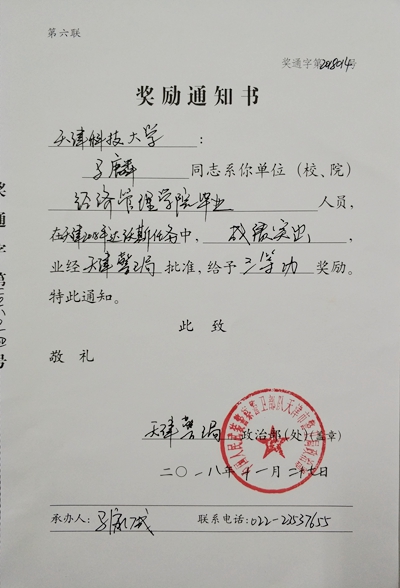 第六联
奖通字第2018014号
奖励通知书
天津科技大学：
马麟同志系你单位（校、院）
经济管理学院毕业人员，
在天津2018年达沃斯任务中，战绩突出，
业经天津警卫局批准，给予三等功奖励。
特此通知。
此致
敬礼
天津警卫局政治部(处)(盖章)
二〇一八年十一月二十七日
承办人：马 联系电话：022-23537655
奖通字第 号